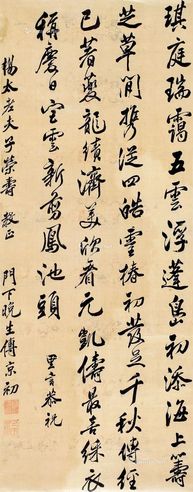 琪庭瑞靄五雲浮蓬島初添海上籌
芝草閒携從四皓靈椿初發足千秋傳經
已著夔龍績濟美欣看元凱儔最喜綵衣
稱慶日空雲新鳳池頭
里言恭祝
楊太老夫子榮壽 教正
門下晚生傅京初